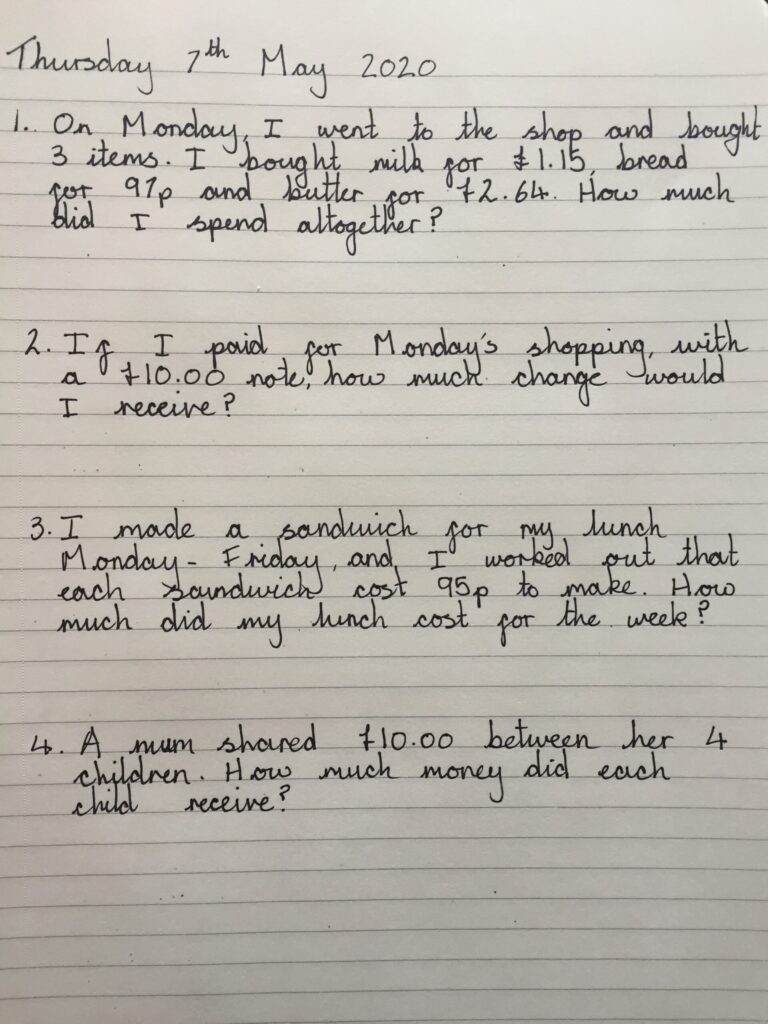 Thursday 7th May 2020
1. On Monday, I went to the shop and bought
3 items. I bought milk for £1.15, bread
for 97p and butter for £2.64. How much
did I spend altogether?
2. If I paid for Monday's shopping, with
a £10.00 note, how much change would
I receive?
3. I made a sandwich for my lunch
Monday - Friday, and I worked out that
each sandwich cost 95p to make. How
much did my lunch cost for the week?
4. A mum shared £10.00 between her 4
children. How much money did each
child receive?